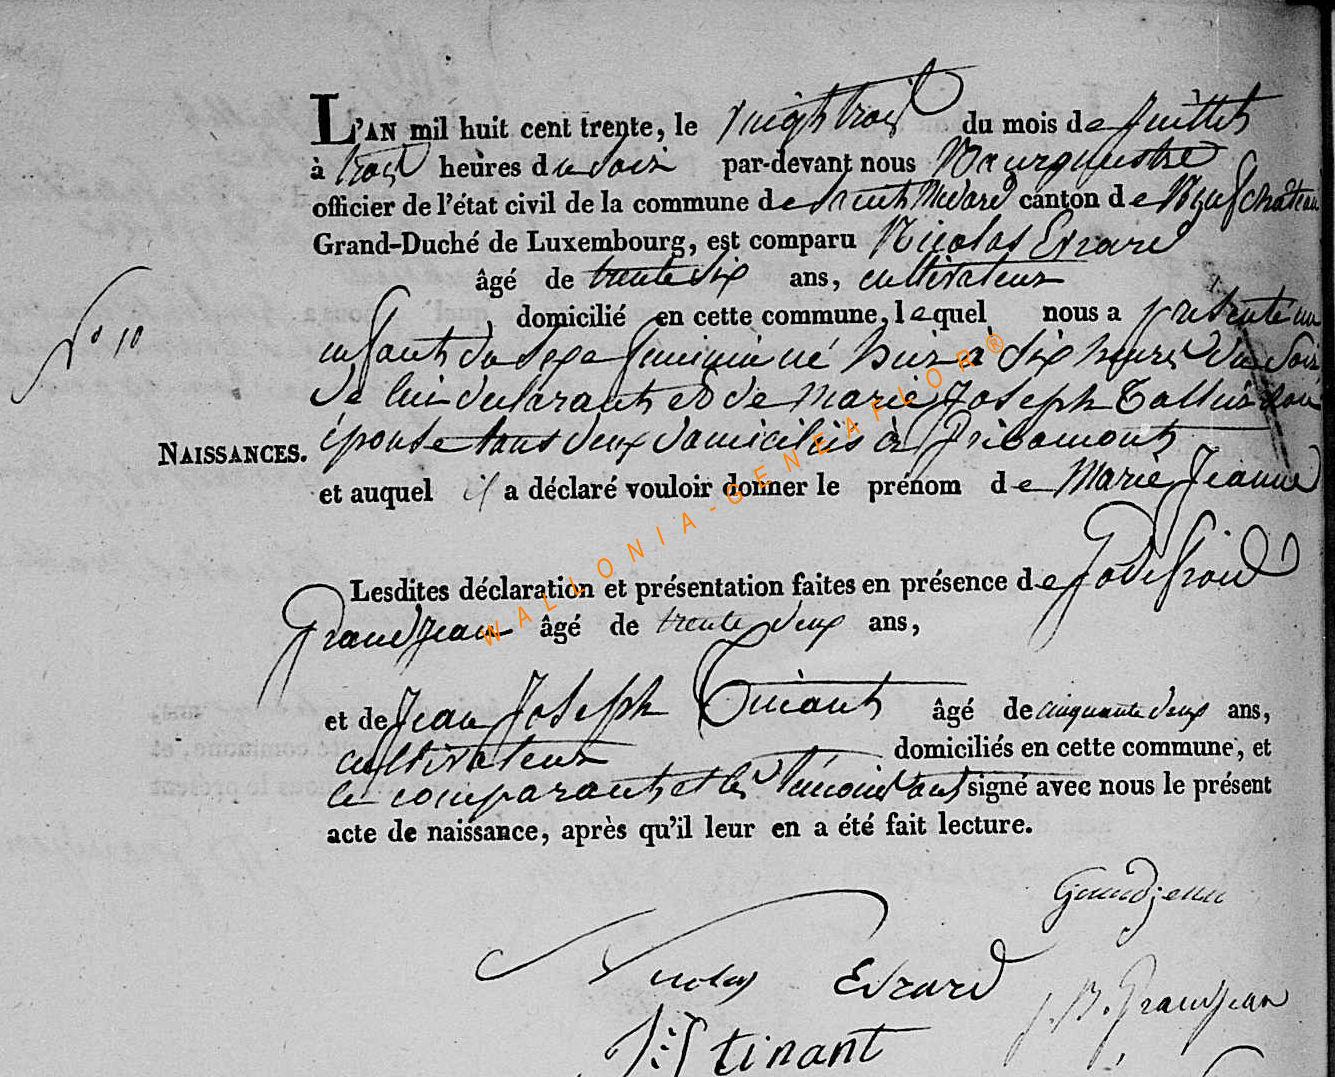 L'AN mil huit cent trente, le vingt trois du mois de Juillet
à trois heures du soir par-devant nous Bourguestre
officier de l'état civil de la commune de saint Médard canton de Neufchateau
Grand-Duché de Luxembourg, est comparu Nicolas Evrard
âgé de trente six ans, cultivateur
N° 10
domicilié en cette commune, lequel nous a presenté un
enfant du sexe féminin né hier à six heures du soir
de lui declarant et de Marie Joseph son
épouse tous deux domiciliés à Gribomont
NAISSANCES.
et auquel il a déclaré vouloir donner le prénom de Marie Jeanne
Lesdites déclaration et présentation faites en présence de Godefroid
Grandjean âgé de trente deux ans,
et de Jean Joseph Tinant âgé de cinquante deux ans,
cultivateurs domiciliés en cette commune, et
le comparant et les témoins ont signé avec nous le présent
acte de naissance, après qu'il leur en a été fait lecture.
Grandjean
Nicolas Evrard
J. B. Grandjean
J: J tinant
WALLONIA-GENEAFLOR®